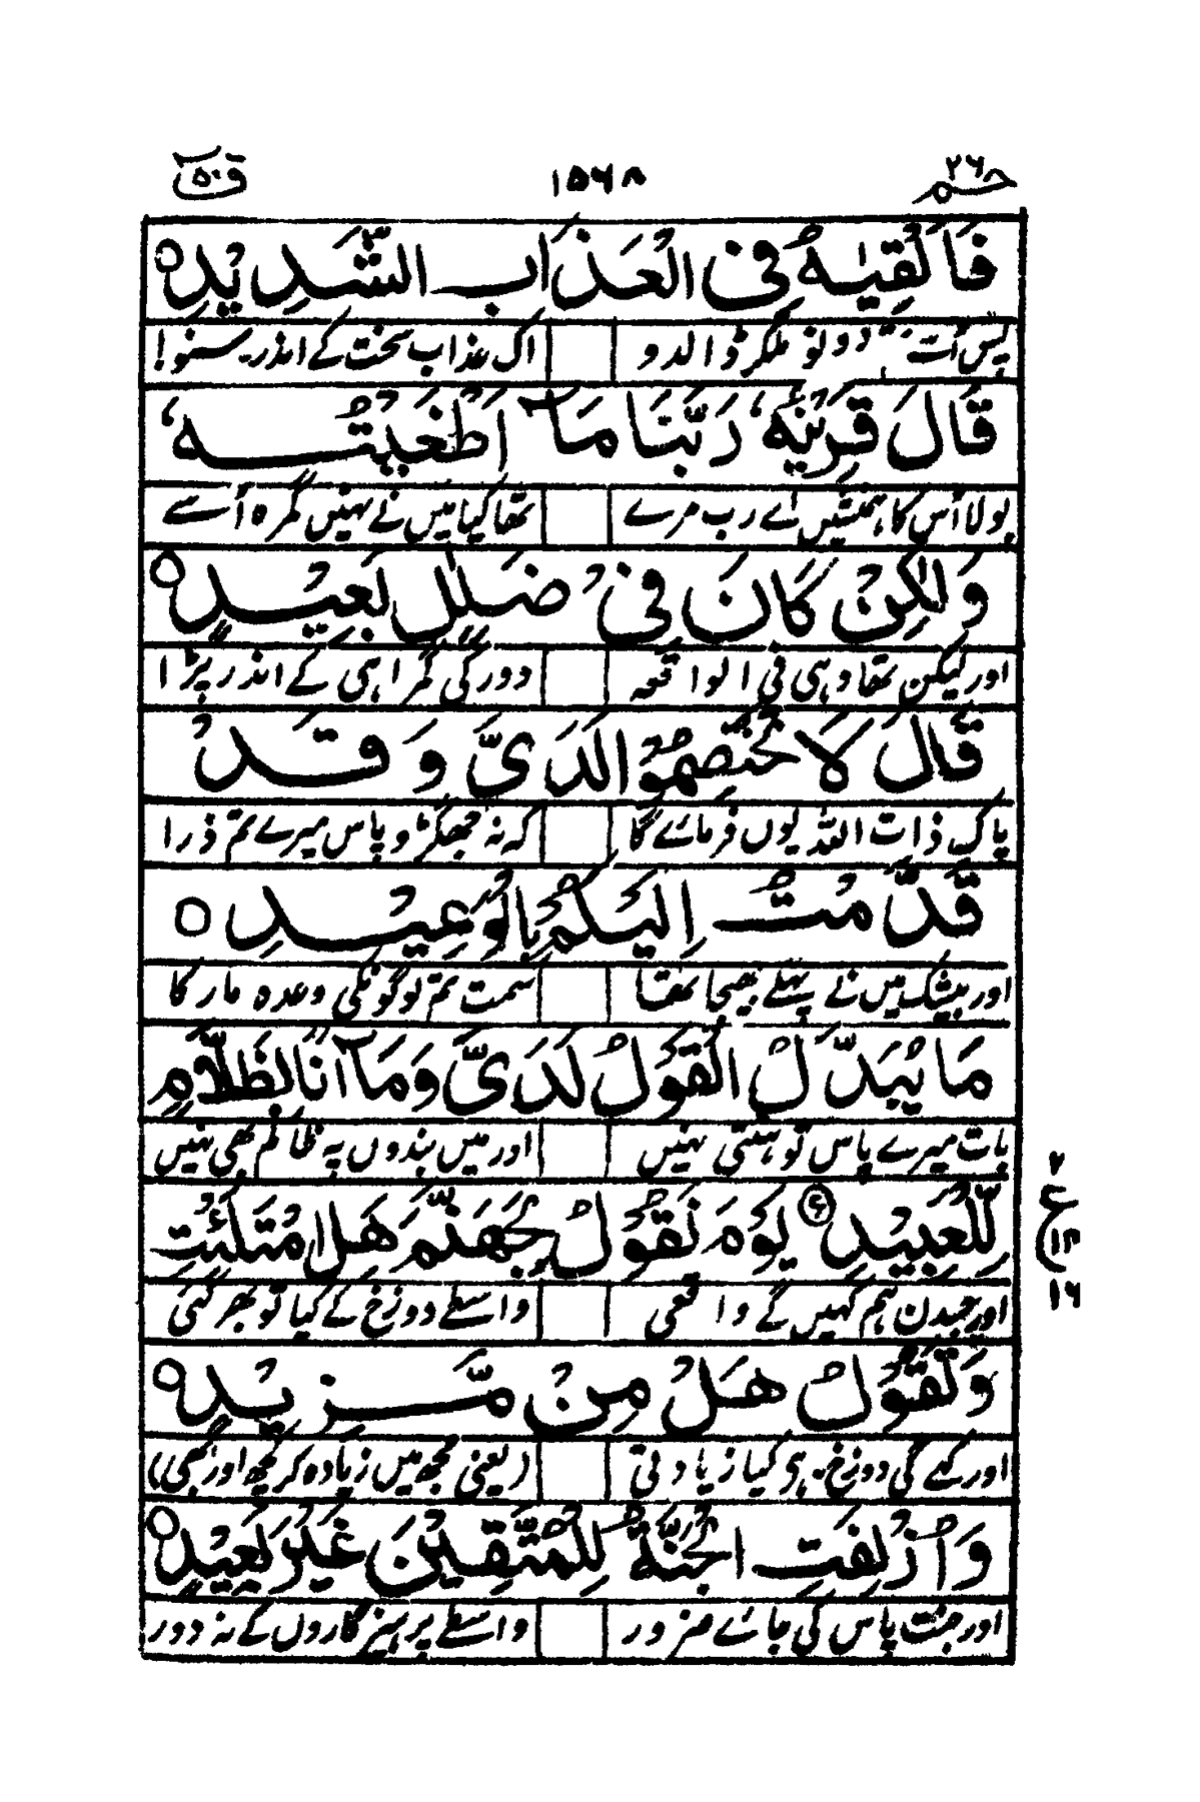 حٰم ٢٦ ١٥٦٨ قٓ ٥٠
فَاَلْقِيٰهُ فِى الْعَذَابِ الشَّدِيْدِ ○
پس اُسے دونو ملکر ڈالدو اک عذاب سخت کے اندر۔ سنو!
قَالَ قَرِيْنُهٗ رَبَّنَا مَآ اَطْغَيْتُهٗ
بولا اُس کا ہمنشیں اے رب مرے تھا کیا میں نے نہیں گمرہ اُسے
وَلٰكِنْ كَانَ فِىْ ضَلٰلٍۢ بَعِيْدٍ ○
اور لیکن تھا وہی فی الواقعہ دور کی گمراہی کے اندر پڑا
قَالَ لَا تَخْتَصِمُوْا لَدَىَّ وَقَدْ
پاک ذات اللہ یوں فرمائے گا کہ نہ جھگڑو پاس میرے تم ذرا
قَدَّمْتُ اِلَيْكُمْ بِالْوَعِيْدِ ○
اور بیشک میں نے پہلے بھیجا تھا سمت تم لوگونکی وعدہ مار کا
مَا يُبَدَّلُ الْقَوْلُ لَدَىَّ وَمَآ اَنَا بِظَلَّامٍ
بات میرے پاس تو ہٹتی نہیں اور میں بندوں پہ ظالم بھی نہیں
لِّلْعَبِيْدِ ○ يَوْمَ نَقُوْلُ لِجَهَنَّمَ هَلِ امْتَلَئْتِ
ع ١٦
اور جسدن ہم کہیں گے واقعی واسطے دوزخ کے کیا تو بھر گئی
وَتَقُوْلُ هَلْ مِنْ مَّزِيْدٍ ○
اور کہے گی دوزخ، ہے کیا زیادتی (یعنی مجھ میں زیادہ کر کچھ اور بھی)
وَاُزْلِفَتِ الْجَنَّةُ لِلْمُتَّقِيْنَ غَيْرَ بَعِيْدٍ ○
اور جنت پاس کی جائے ضرور واسطے پرہیزگاروں کے نہ دور